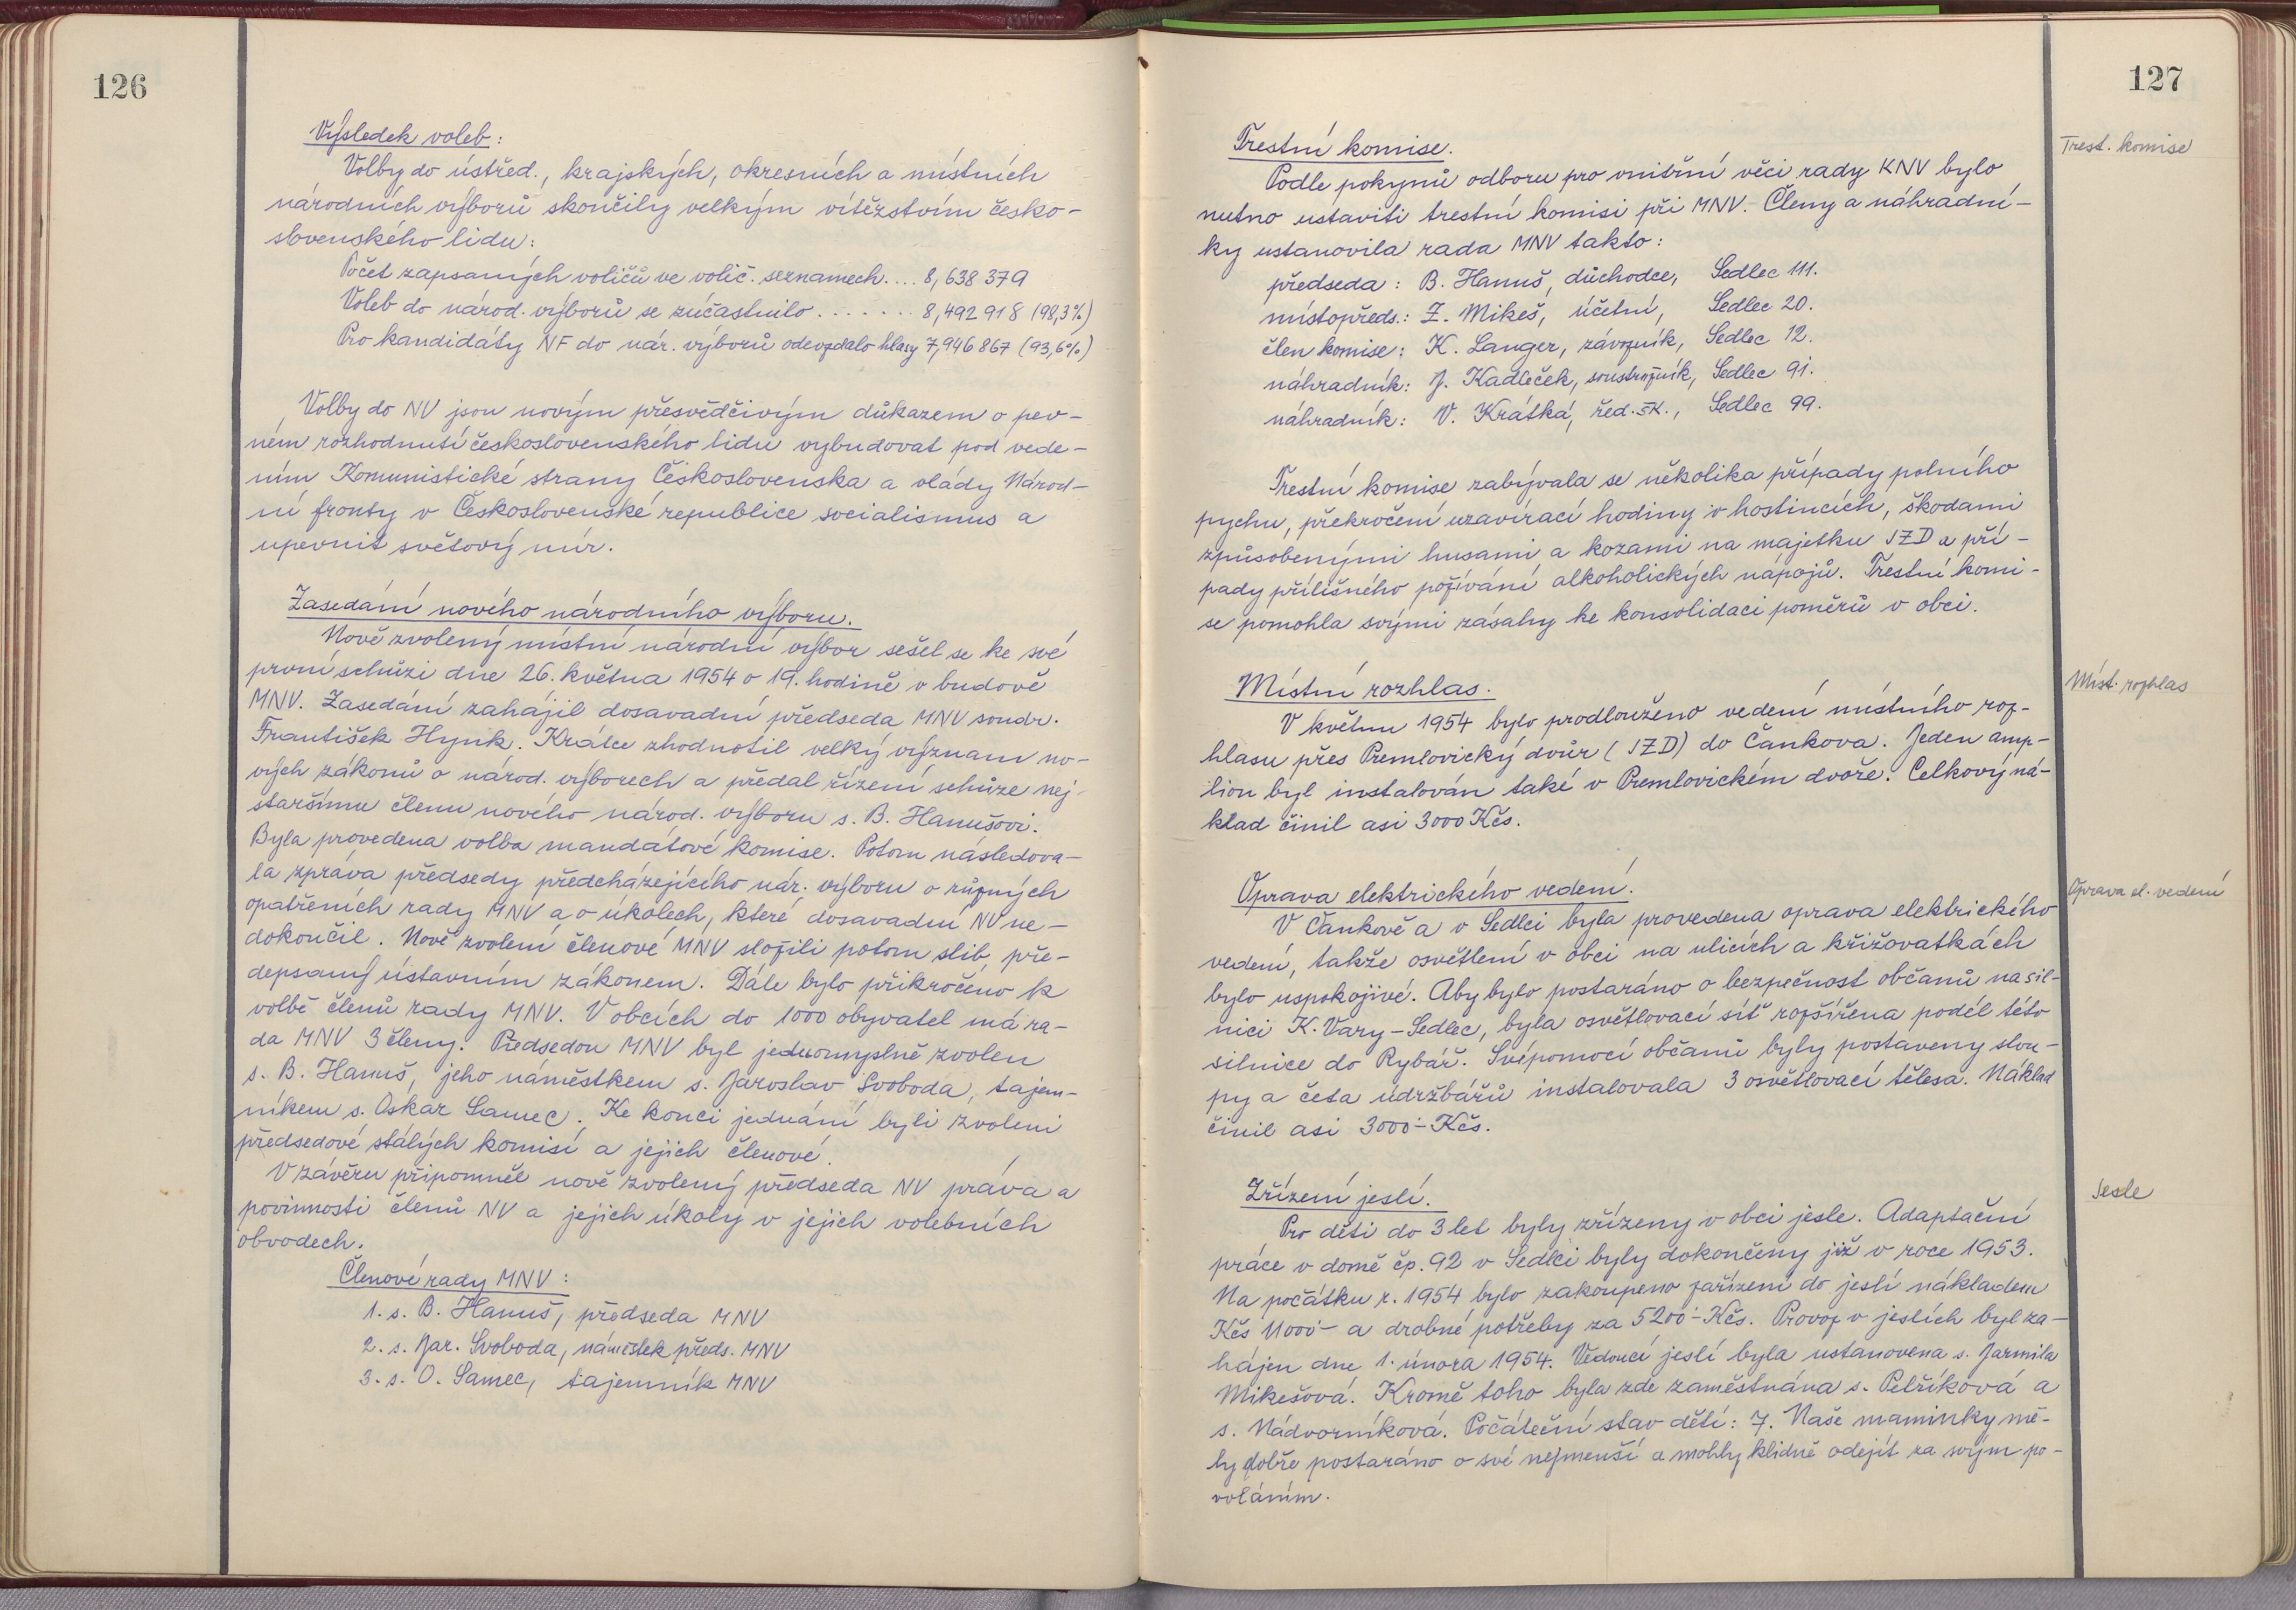 126
Výsledek voleb:
Volby do ústřed., krajských, okresních a místních
národních výborů skončily velkým vítězstvím česko-
slovenského lidu:
Počet zapsaných voličů ve volič. seznamech.... 8,638 379
Voleb do národ. výborů se zúčastnilo ....... 8,492 918 (98,3%)
Pro kandidáty NF do nár. výborů odevzdalo hlasy 7,946 867 (93,6%)
Volby do NV jsou novým přesvědčivým důkazem o pev-
ném rozhodnutí československého lidu vybudovat pod vede-
ním Komunistické strany Československa a vlády Národ-
ní fronty v Československé republice socialismus a
upevnit světový mír.
Zasedání nového národního výboru.
Nově zvolený místní národní výbor sešel se ke své
první schůzi dne 26. května 1954 o 19. hodině v budově
MNV. Zasedání zahájil dosavadní předseda MNV soudr.
František Hynk. Krátce zhodnotil velký význam no-
vých zákonů o národ. výborech a předal řízení schůze nej-
staršímu členu nového národ. výboru s. B. Hanušovi.
Byla provedena volba mandátové komise. Potom následova-
la zpráva předsedy předcházejícího nár. výboru o různých
opatřeních rady MNV a o úkolech, které dosavadní NV ne-
dokončil. Nově zvolení členové MNV složili potom slib, pře-
depsaný ústavním zákonem. Dále bylo přikročeno k
volbě členů rady MNV. V obcích do 1000 obyvatel má ra-
da MNV 3 členy. Předsedou MNV byl jednomyslně zvolen
s. B. Hanuš, jeho náměstkem s. Jaroslav Svoboda, tajem-
níkem s. Oskar Samec. Ke konci jednání byli zvoleni
předsedové stálých komisí a jejich členové.
V závěru připomněl nově zvolený předseda NV práva a
povinnosti členů NV a jejich úkoly v jejich volebních
obvodech.
Členové rady MNV:
1. s. B. Hanuš, předseda MNV
2. s. Jar. Svoboda, náměstek předs. MNV
3. s. O. Samec, tajemník MNV
127
Trestní komise.
Trest. komise
Podle pokynů odboru pro vnitřní věci rady KNV bylo
nutno ustaviti trestní komisi při MNV. Členy a náhradní-
ky ustanovila rada MNV takto:
předseda: B. Hanuš, důchodce, Sedlec 111.
místopředs.: Z. Mikeš, účetní, Sedlec 20.
člen komise: K. Langer, závozník, Sedlec 12.
náhradník: J. Kadleček, soustružník, Sedlec 91.
náhradník: V. Krátká, řed. šk., Sedlec 99.
Trestní komise zabývala se několika případy polního
pychu, překročení uzavírací hodiny v hostincích, škodami
způsobenými husami a kozami na majetku JZD a pří-
pady přílišného požívání alkoholických nápojů. Trestní komi-
se pomohla svými zásahy ke konsolidaci poměrů v obci.
Místní rozhlas.
Míst. rozhlas
V květnu 1954 bylo prodlouženo vedení místního roz-
hlasu přes Premlovický dvůr (JZD) do Čankova. Jeden amp-
lion byl instalován také v Premlovickém dvoře. Celkový ná-
klad činil asi 3000 Kčs.
Oprava elektrického vedení.
Oprava el. vedení
V Čankově a v Sedlci byla provedena oprava elektrického
vedení, takže osvětlení v obci na ulicích a křižovatkách
bylo uspokojivé. Aby bylo postaráno o bezpečnost občanů na sil-
nici K. Vary-Sedlec, byla osvětlovací síť rozšířena podél této
silnice do Rybář. Svépomocí občanů byly postaveny slou-
py a četa údržbářů instalovala 3 osvětlovací tělesa. Náklad
činil asi 3000·- Kčs.
Zřízení jeslí.
Jesle
Pro děti do 3 let byly zřízeny v obci jesle. Adaptační
práce v domě čp. 92 v Sedlci byly dokončeny již v roce 1953.
Na počátku r. 1954 bylo zakoupeno zařízení do jeslí nákladem
Kčs 11000·- a drobné potřeby za 5200·- Kčs. Provoz v jeslích byl za-
hájen dne 1. února 1954. Vedoucí jeslí byla ustanovena s. Jarmila
Mikešová. Kromě toho byla zde zaměstnána s. Petříková a
s. Nádvorníková. Počáteční stav dětí: 7. Naše maminky mě-
ly dobře postaráno o své nejmenší a mohly klidně odejít za svým po-
voláním.